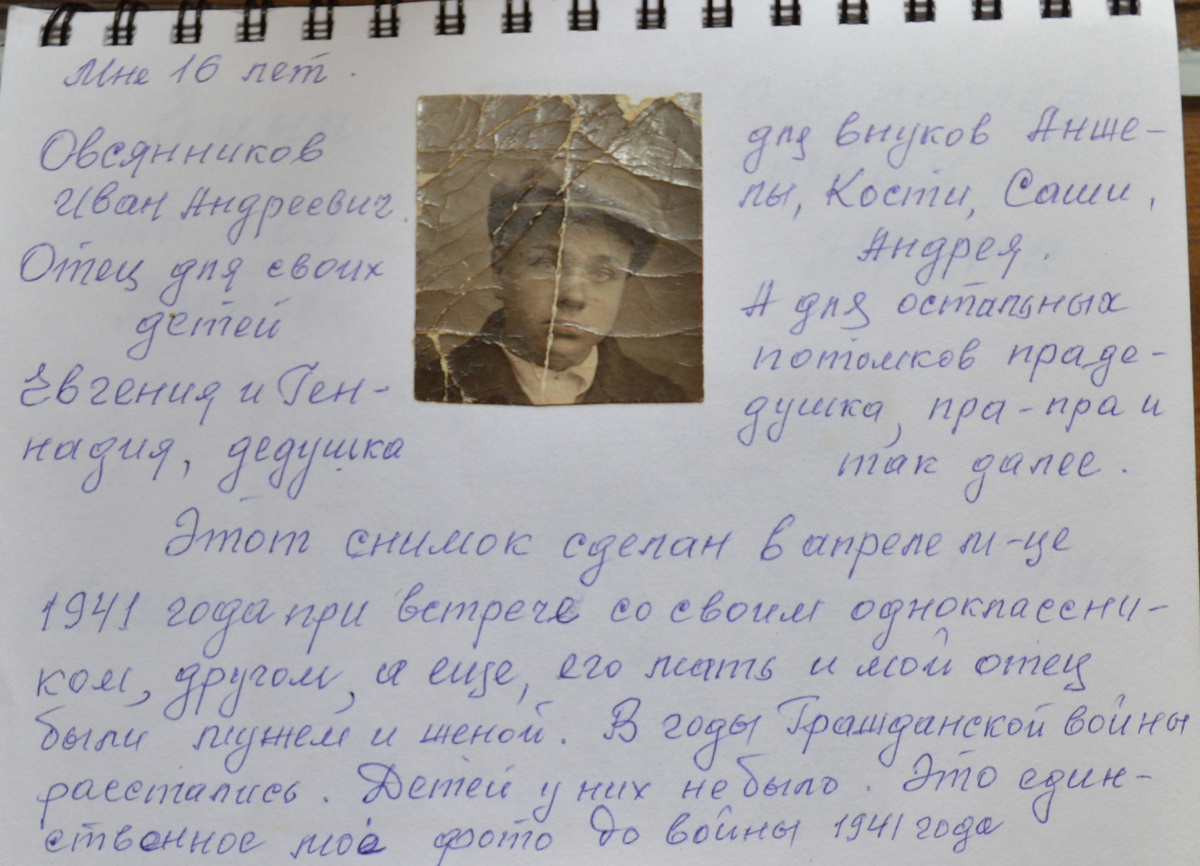 Мне 16 лет.
Овсянников
Иван Андреевич.
Отец для своих
детей
Евгения и Ген-
надия, дедушка
для внуков Анже-
лы, Кости, Саши,
Андрея.
А для остальных
потомков праде-
душка, пра-пра и
так далее.
Этот снимок сделан в апреле м-це
1941 года при встрече со своим одноклассни-
ком, другом, а еще, его мать и мой отец
были мужем и женой. В годы Гражданской войны
расстались. Детей у них не было. Это един-
ственное моё фото до войны 1941 года